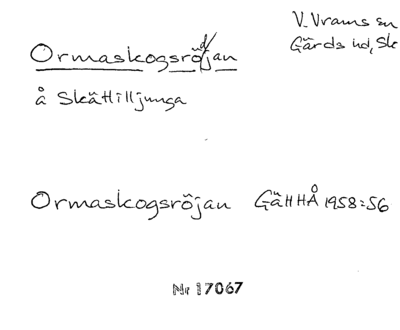 V. Vrams sn
Gärds hd, Sk
Ormaskogsrödjan
å Skättilljunga
Ormaskogsröjan GäHHÅ 1958:56
Nr 17067